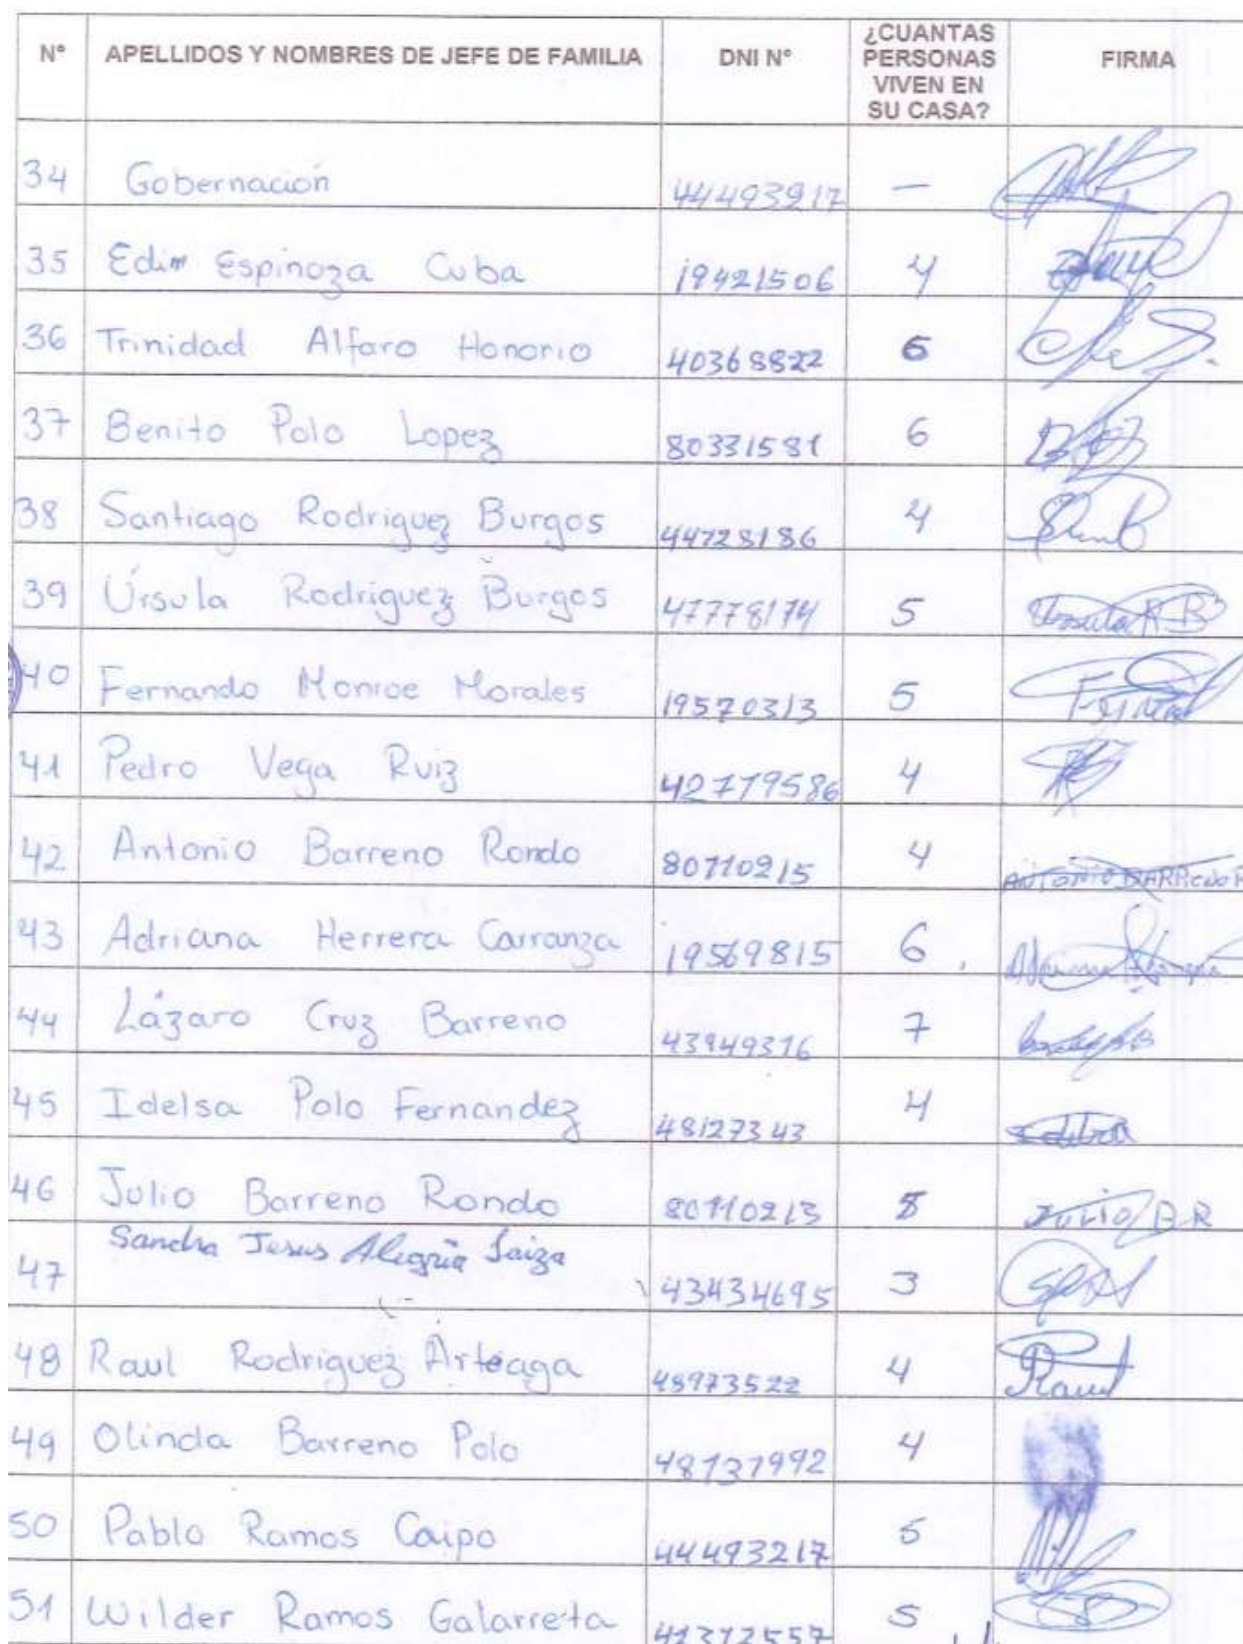 N° APELLIDOS Y NOMBRES DE JEFE DE FAMILIA DNI N° ¿CUANTAS PERSONAS VIVEN EN SU CASA? FIRMA
34 Gobernación 44493217 —
35 Edim Espinoza Cuba 19421506 4
36 Trinidad Alfaro Honorio 40368822
37 Benito Polo Lopez 80331581 6
38 Santiago Rodriguez Burgos 44728186 4
39 Úrsula Rodriguez Burgos 47778174 5 Ursula R B
40 Fernando Monroe Morales 19570313 5
41 Pedro Vega Ruiz 42779586 4
42 Antonio Barreno Rondo 80110215 4 ANTONIO BARRENO R
43 Adriana Herrera Carranza 19569815 6
44 Lázaro Cruz Barreno 43949316 7
45 Idelsa Polo Fernandez 48127343 4
46 Julio Barreno Rondo 80110213 JULIO B R
47 Sandra Jesus Alegria Laiza 43434695 3
48 Raul Rodriguez Arteaga 48973522 4 Raul
49 Olinda Barreno Polo 48137992 4
50 Pablo Ramos Caipo 44493217 5
51 Wilder Ramos Galarreta 5